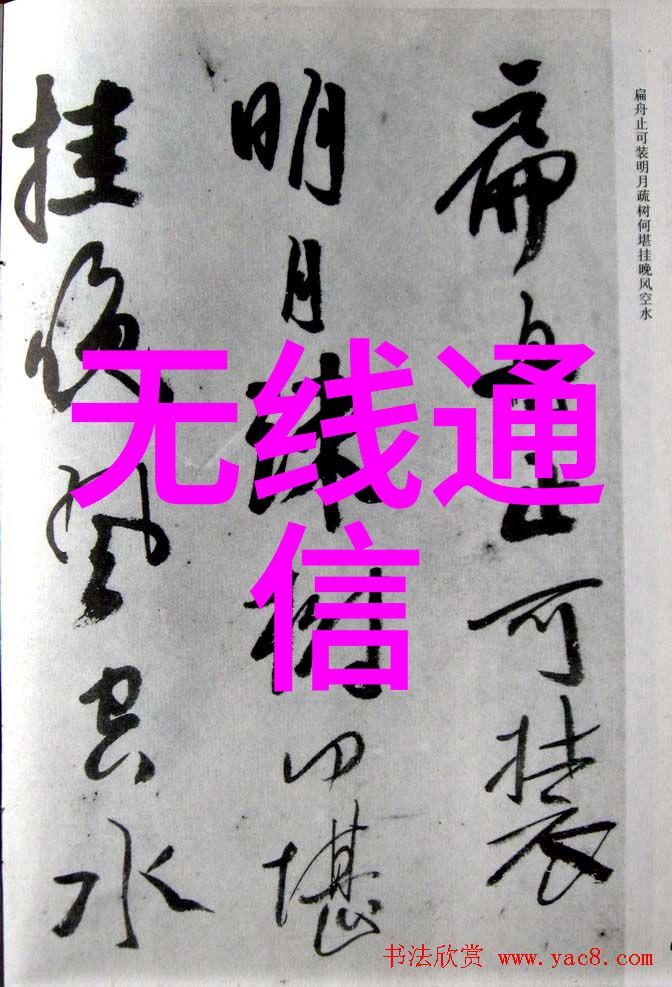 扁舟止可装
明月疏树何堪
挂晚风空水
扁舟止可装明月疏树何堪挂晚风空水
无线通
信
书法欣赏 www.yac8.com